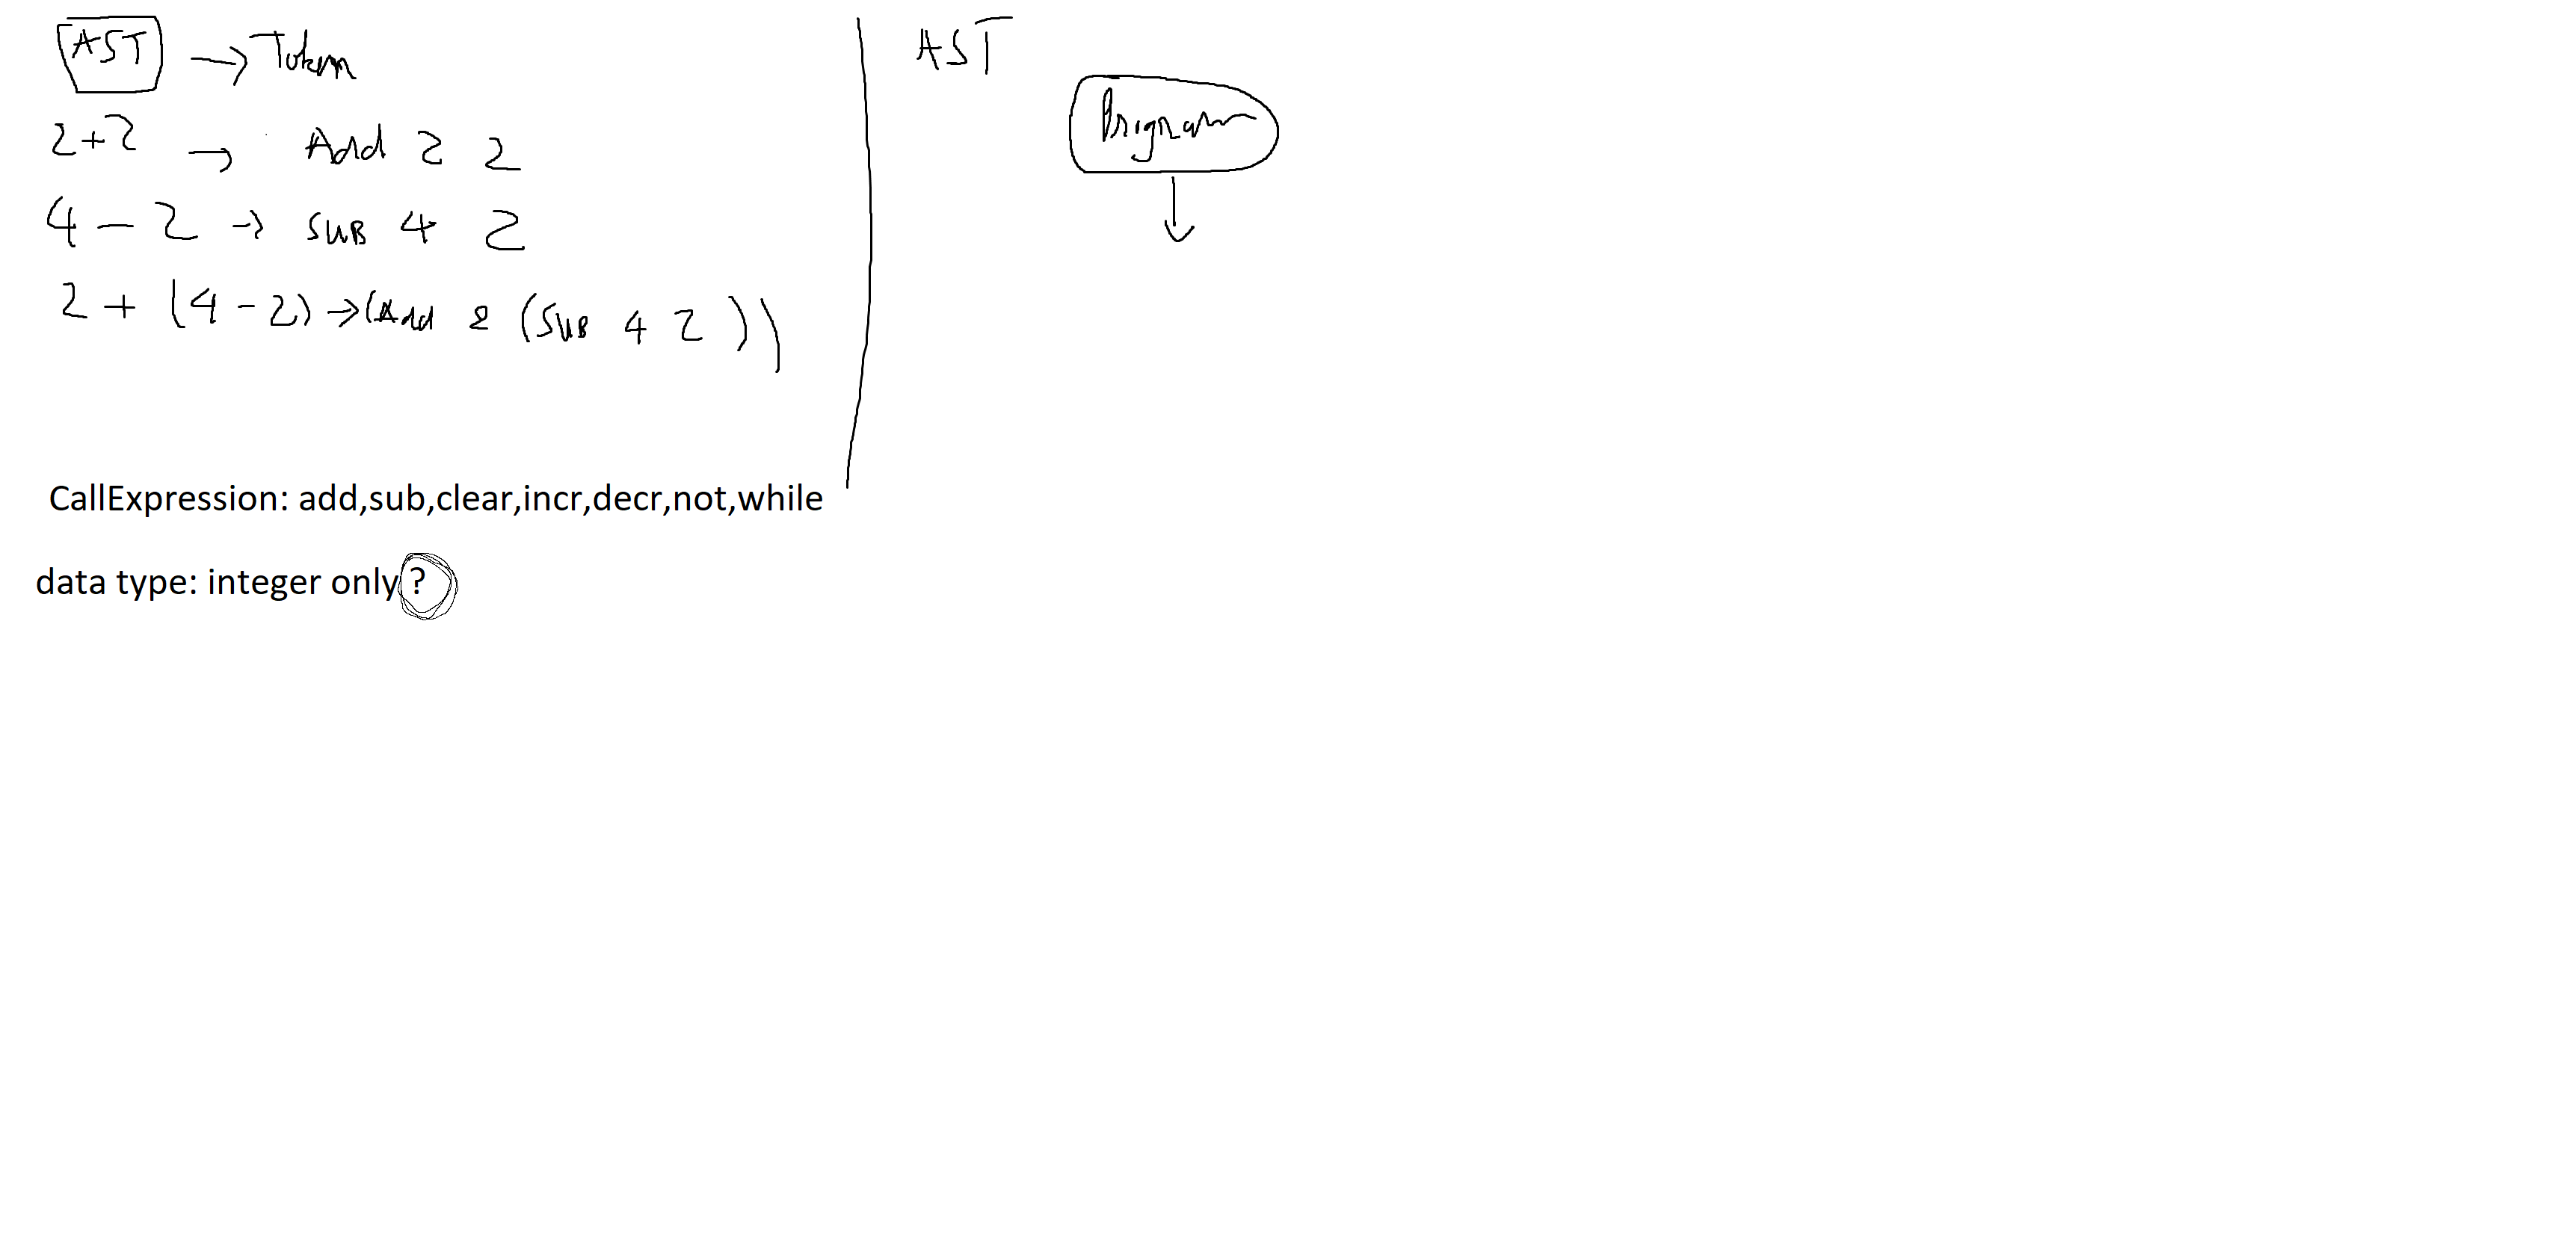 AST → Token
2+2 → Add 2 2
4 - 2 → SUB 4 2
2 + (4 - 2) → (Add 2 (SUB 4 2))
CallExpression: add,sub,clear,incr,decr,not,while
data type: integer only ?
AST
Program